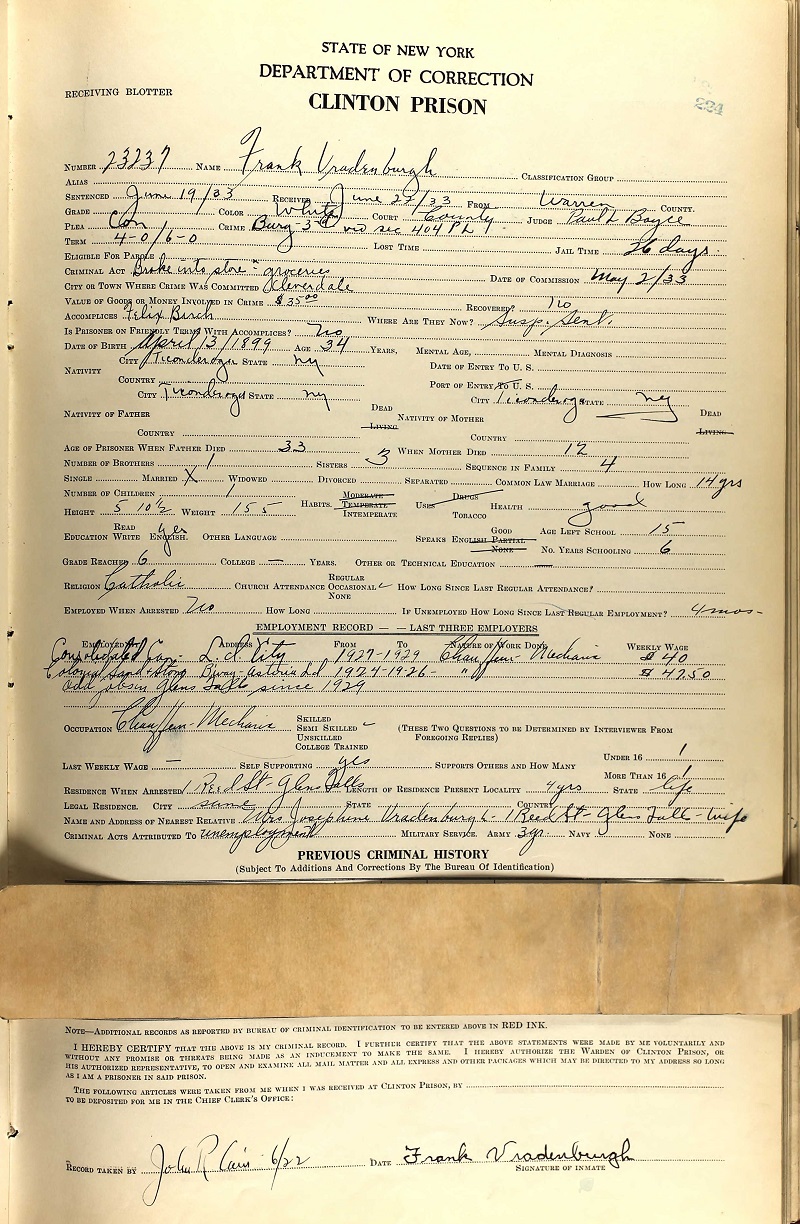 STATE OF NEW YORK
DEPARTMENT OF CORRECTION
RECEIVING BLOTTER
CLINTON PRISON
224
NUMBER 23237 NAME Frank Vradenburgh CLASSIFICATION GROUP
ALIAS
SENTENCED June 19/33 RECEIVED June 22/33 FROM Warren COUNTY.
GRADE COLOR White COURT County JUDGE Paul L Boyce
PLEA Con CRIME Burg 3rd vio sec 404 PL
TERM 4-0/6-0 LOST TIME JAIL TIME 26 days
ELIGIBLE FOR PAROLE
CRIMINAL ACT Broke into store - groceries DATE OF COMMISSION May 2/33
CITY OR TOWN WHERE CRIME WAS COMMITTED Cleverdale
VALUE OF GOODS OR MONEY INVOLVED IN CRIME $35 00 RECOVERED? no
ACCOMPLICES Felix Birch WHERE ARE THEY NOW? Susp. Sent.
IS PRISONER ON FRIENDLY TERMS WITH ACCOMPLICES? No
DATE OF BIRTH April /3/1899 AGE 34 YEARS, MENTAL AGE, MENTAL DIAGNOSIS
NATIVITY CITY Ticonderoga STATE ny DATE OF ENTRY TO U. S.
COUNTRY PORT OF ENTRY TO U. S.
CITY Ticonderoga STATE ny CITY Ticonderoga STATE ny
NATIVITY OF FATHER DEAD NATIVITY OF MOTHER DEAD
COUNTRY LIVING COUNTRY LIVING
AGE OF PRISONER WHEN FATHER DIED 33 WHEN MOTHER DIED 12
NUMBER OF BROTHERS 1 SISTERS 3 SEQUENCE IN FAMILY 4
SINGLE MARRIED X WIDOWED DIVORCED SEPARATED COMMON LAW MARRIAGE HOW LONG 14 yrs
NUMBER OF CHILDREN 1 HABITS. MODERATE TEMPERATE INTEMPERATE USES DRUGS TOBACCO HEALTH good
HEIGHT 5 10½ WEIGHT 155
EDUCATION READ WRITE ENGLISH. yes OTHER LANGUAGE SPEAKS ENGLISH GOOD PARTIAL NONE AGE LEFT SCHOOL 15
NO. YEARS SCHOOLING 6
GRADE REACHED 6 COLLEGE — YEARS. OTHER OR TECHNICAL EDUCATION —
RELIGION Catholic CHURCH ATTENDANCE REGULAR OCCASIONAL ✓ NONE HOW LONG SINCE LAST REGULAR ATTENDANCE?
EMPLOYED WHEN ARRESTED No HOW LONG IF UNEMPLOYED HOW LONG SINCE LAST REGULAR EMPLOYMENT? 4 mos-
EMPLOYMENT RECORD — — LAST THREE EMPLOYERS
EMPLOYED BY ADDRESS FROM TO NATURE OF WORK DONE WEEKLY WAGE
Consolidated Gas- L.I. City 1927-1929 Chauffeur-Mechanic $40
Colonial Sand & Stone Astoria L.I 1924-1926- " $47.50
Odd jobs in Glens Falls since 1929
OCCUPATION Chauffeur-Mechanic SKILLED SEMI SKILLED ✓ UNSKILLED COLLEGE TRAINED (THESE TWO QUESTIONS TO BE DETERMINED BY INTERVIEWER FROM FOREGOING REPLIES)
LAST WEEKLY WAGE — SELF SUPPORTING yes SUPPORTS OTHERS AND HOW MANY UNDER 16 1
MORE THAN 16 1
RESIDENCE WHEN ARRESTED 1 Reed St- Glens Falls LENGTH OF RESIDENCE PRESENT LOCALITY 4 yrs STATE life
LEGAL RESIDENCE. CITY same STATE COUNTRY
NAME AND ADDRESS OF NEAREST RELATIVE Mrs Josephine Vradenburgh- 1 Reed St- Glens Falls- wife
CRIMINAL ACTS ATTRIBUTED TO unemployment MILITARY SERVICE. ARMY 3 yr NAVY NONE
PREVIOUS CRIMINAL HISTORY
(Subject To Additions And Corrections By The Bureau Of Identification)
NOTE—ADDITIONAL RECORDS AS REPORTED BY BUREAU OF CRIMINAL IDENTIFICATION TO BE ENTERED ABOVE IN RED INK.
I HEREBY CERTIFY THAT THE ABOVE IS MY CRIMINAL RECORD. I FURTHER CERTIFY THAT THE ABOVE STATEMENTS WERE MADE BY ME VOLUNTARILY AND
WITHOUT ANY PROMISE OR THREATS BEING MADE AS AN INDUCEMENT TO MAKE THE SAME. I HEREBY AUTHORIZE THE WARDEN OF CLINTON PRISON, OR
HIS AUTHORIZED REPRESENTATIVE, TO OPEN AND EXAMINE ALL MAIL MATTER AND ALL EXPRESS AND OTHER PACKAGES WHICH MAY BE DIRECTED TO MY ADDRESS SO LONG
AS I AM A PRISONER IN SAID PRISON.
THE FOLLOWING ARTICLES WERE TAKEN FROM ME WHEN I WAS RECEIVED AT CLINTON PRISON, BY
TO BE DEPOSITED FOR ME IN THE CHIEF CLERK'S OFFICE:
RECORD TAKEN BY John R Cain 6/22 DATE Frank Vradenburgh
SIGNATURE OF INMATE